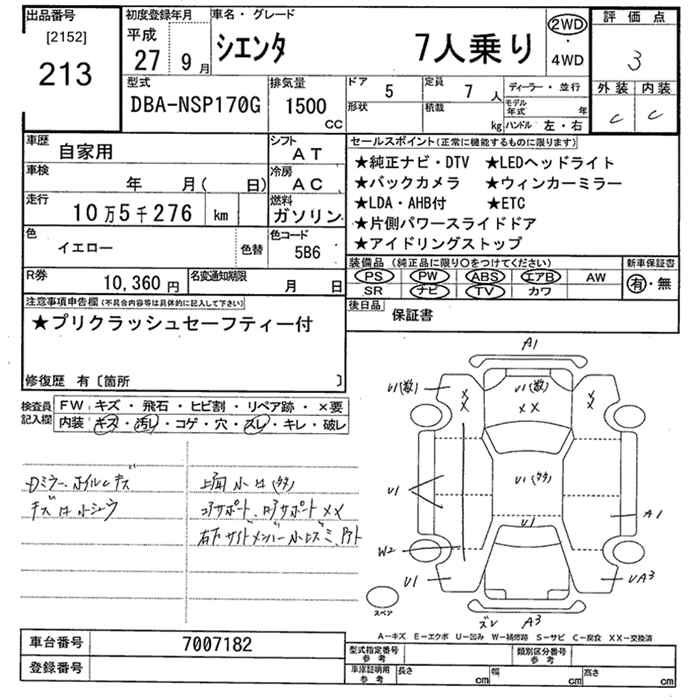 出品番号
[2152]
213
初度登録年月
平成
27年9月
車名・グレード
シエンタ 7人乗り
2WD
・
4WD
評価点
3
外装 内装
C C
型式
DBA-NSP170G
排気量
1500
CC
ドア 5
定員 7 人
ディーラー・並行
形状
積載 kg
モデル年式 年
ハンドル 左・右
車歴
自家用
シフト
AT
車検
年 月( 日)
冷房
AC
走行
10万5千276 km
燃料
ガソリン
色
イエロー
色替
色コード
5B6
R券
10,360円
名変通知期限
月 日
セールスポイント(正常に機能するものに限ります)
★純正ナビ・DTV ★LEDヘッドライト
★バックカメラ ★ウィンカーミラー
★LDA・AHB付 ★ETC
★片側パワースライドドア
★アイドリングストップ
装備品 (純正品に限り○をつけてください)
PS PW ABS エアB AW
SR ナビ TV カワ
新車保証書
有・無
後日品
保証書
注意事項申告欄(不具合内容等は具体的に記入して下さい)
★プリクラッシュセーフティー付
修復歴 有〔箇所 〕
検査員記入欄
FW キズ・飛石・ヒビ割・リペア跡・×要
内装 キズ・汚レ・コゲ・穴・スレ・キレ・破レ
Dミラー、ホイルCキズ
上面小U(多タ)
コアサポート、ロアサポートメメ
A1
U1(数)
U1(数)
××
××
××
U1
U1(多タ)
U1
A1
W2
U1
UA3
スペア
ズレ
A3
A-キズ E-エクボ U-凹み W-補修跡 S-サビ C-腐食 XX-交換済
車台番号
7007182
登録番号
型式指定番号
参考
類別区分番号
参考
車庫証明用
参考
長さ cm
幅 cm
高さ cm